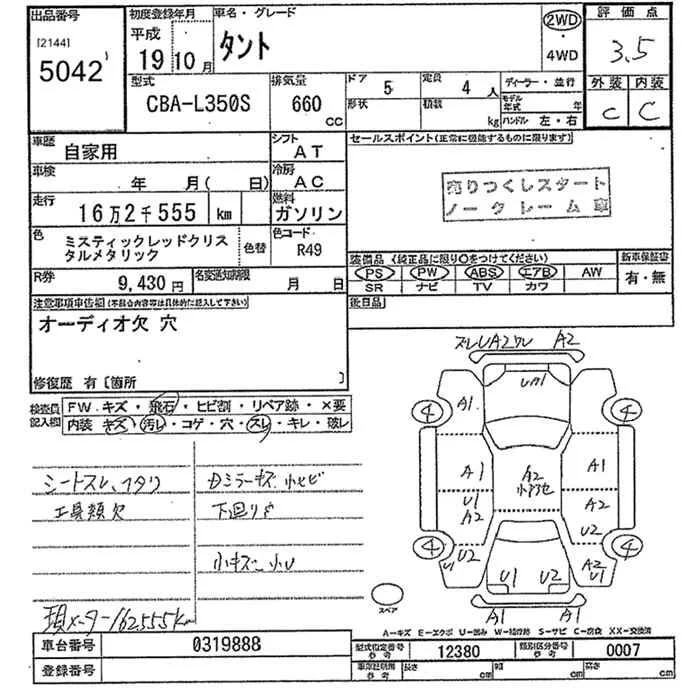 出品番号
[2144]
5042
初度登録年月
平成
19年10月
車名・グレード
タント
2WD
・
4WD
評価点
3.5
外装 内装
C C
型式
CBA-L350S
排気量
660
cc
ドア 5
形状
定員 4 人
積数 kg
ディーラー・並行
モデル年式 年
ハンドル 左・右
車歴
自家用
シフト
AT
車検
年 月( 日)
冷房
AC
走行
16万2千555 km
燃料
ガソリン
色
ミスティックレッドクリス
タルメタリック
色替
色コード
R49
R券
9,430円
名変通知期限
月 日
セールスポイント(正常に機能するものに限ります)
売りつくしスタート
ノークレーム車
装備品 (純正品に限り○をつけてください)
PS PW ABS エアB AW
SR ナビ TV カワ
新車保証書
有・無
後日品
注意事項申告欄(不具合内容等は具体的に記入して下さい)
オーディオ欠 穴
修復歴 有〔箇所 〕
検査員
記入欄
FW キズ・飛石・ヒビ割・リペア跡・×要
内装 キズ・汚レ・コゲ・穴・スレ・キレ・破レ
シートスレ、ヘタリ
工具類欠
Dミラーキズ 小ヒビ
下廻りサ
小キズ 小U
現メーター162555km
スレU A2ワレ A2
UA1
A1
4 4
A1 A2 A1
U1 A2
A2 U2
4 4
U1 U2 A2 U1
U1 U2
A1 A1
スペア
A-キズ E-エクボ U-凹み W-補修跡 S-サビ C-腐食 XX-交換済
車台番号 0319888
登録番号
型式指定番号 参考 12380
類別区分番号 参考 0007
車両証明用 参考 長さ cm 幅 cm 高さ cm